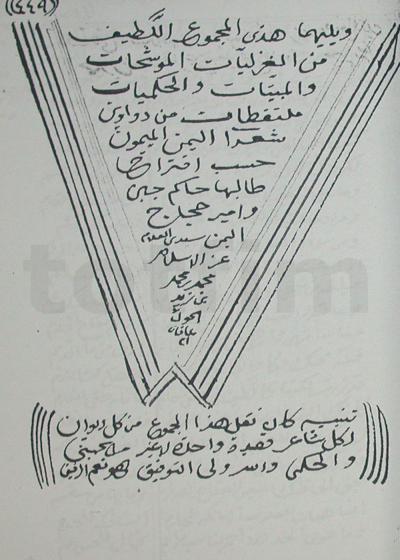 ((٤٤٩))
ويليهما هذى المجموع اللّطيف
من الغزليّات الموشّحات
والمبيّتات والحكميات
ملتقطات من دواوين
شعرا اليمن الميمون
حسب اقتراح
طالبها حاكم جبى
وامير حجاج
اليمن سيدى العلامه
عز الاسلام
محمد محمد
بن زيد
الحوثى
تنبيه كان نقل هذا المجموع من كل ديوان
لكل شاعر قصيدة واحدة لا غير
والحكمى والله ولى التوفيق فهو نعم
totfim